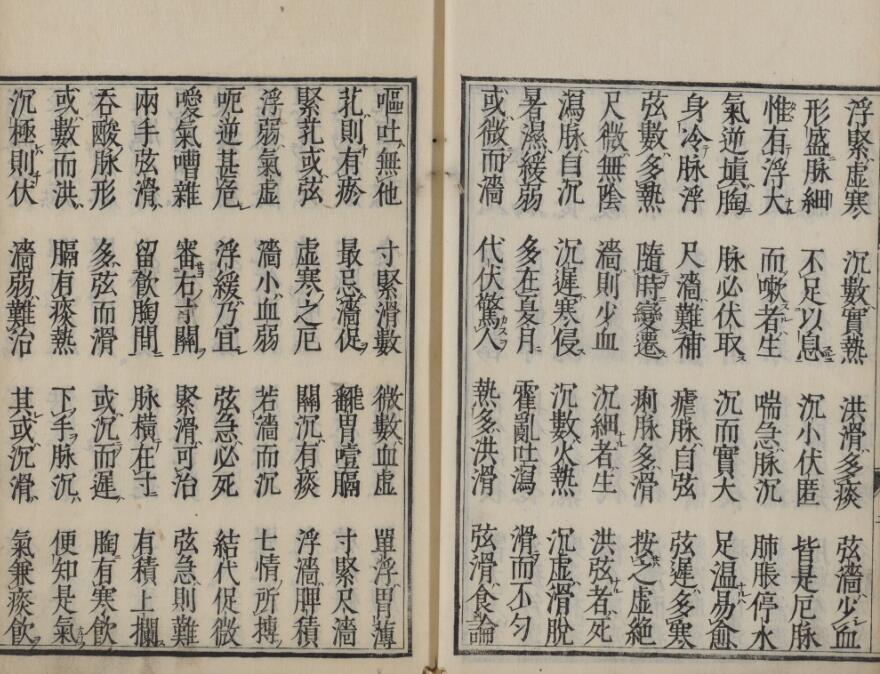 浮緊虛寒　沉數實熱　洪滑多痰　弦濇少血
形盛脉細　不足以息　沉小伏匿　皆是厄脉
惟有浮大　而嗽者生　喘急脉沉　肺脹停水
氣逆塡胸　脉必伏取　沉而實大　足溫易愈
身冷脉浮　尺濇難補　瘧脉自弦　弦遲多寒
弦數多熱　隨時變遷　痢脉多滑　按之虛絕
尺微無陰　濇則少血　沉細者生　洪弦者死
瀉脉自沉　沉遲寒侵　沉數火熱　沉虛滑脫
暑濕緩弱　多在夏月　霍亂吐瀉　滑而不匀
或微而濇　代伏驚人　熱多洪滑　弦滑食論
嘔吐無他　寸緊滑數　微數血虛　單浮胃薄
芤則有瘀　最忌濇促　翻胃噎膈　寸緊尺濇
緊芤或弦　虛寒之厄　關沉有痰　浮濇脾積
浮弱氣虛　濇小血弱　若濇而沉　七情所搏
呃逆甚危　浮緩乃宜　弦急必死　結代促微
噯氣嘈雜　審右寸關　緊滑可治　弦急則難
兩手弦滑　留飮胸間　脉橫在寸　有積上攔
吞酸脉形　多弦而滑　或沉而遲　胸有寒飮
或數而洪　膈有痰熱　下手脉沉　便知是氣
沉極則伏　濇弱難治　其或沉滑　氣兼痰飮